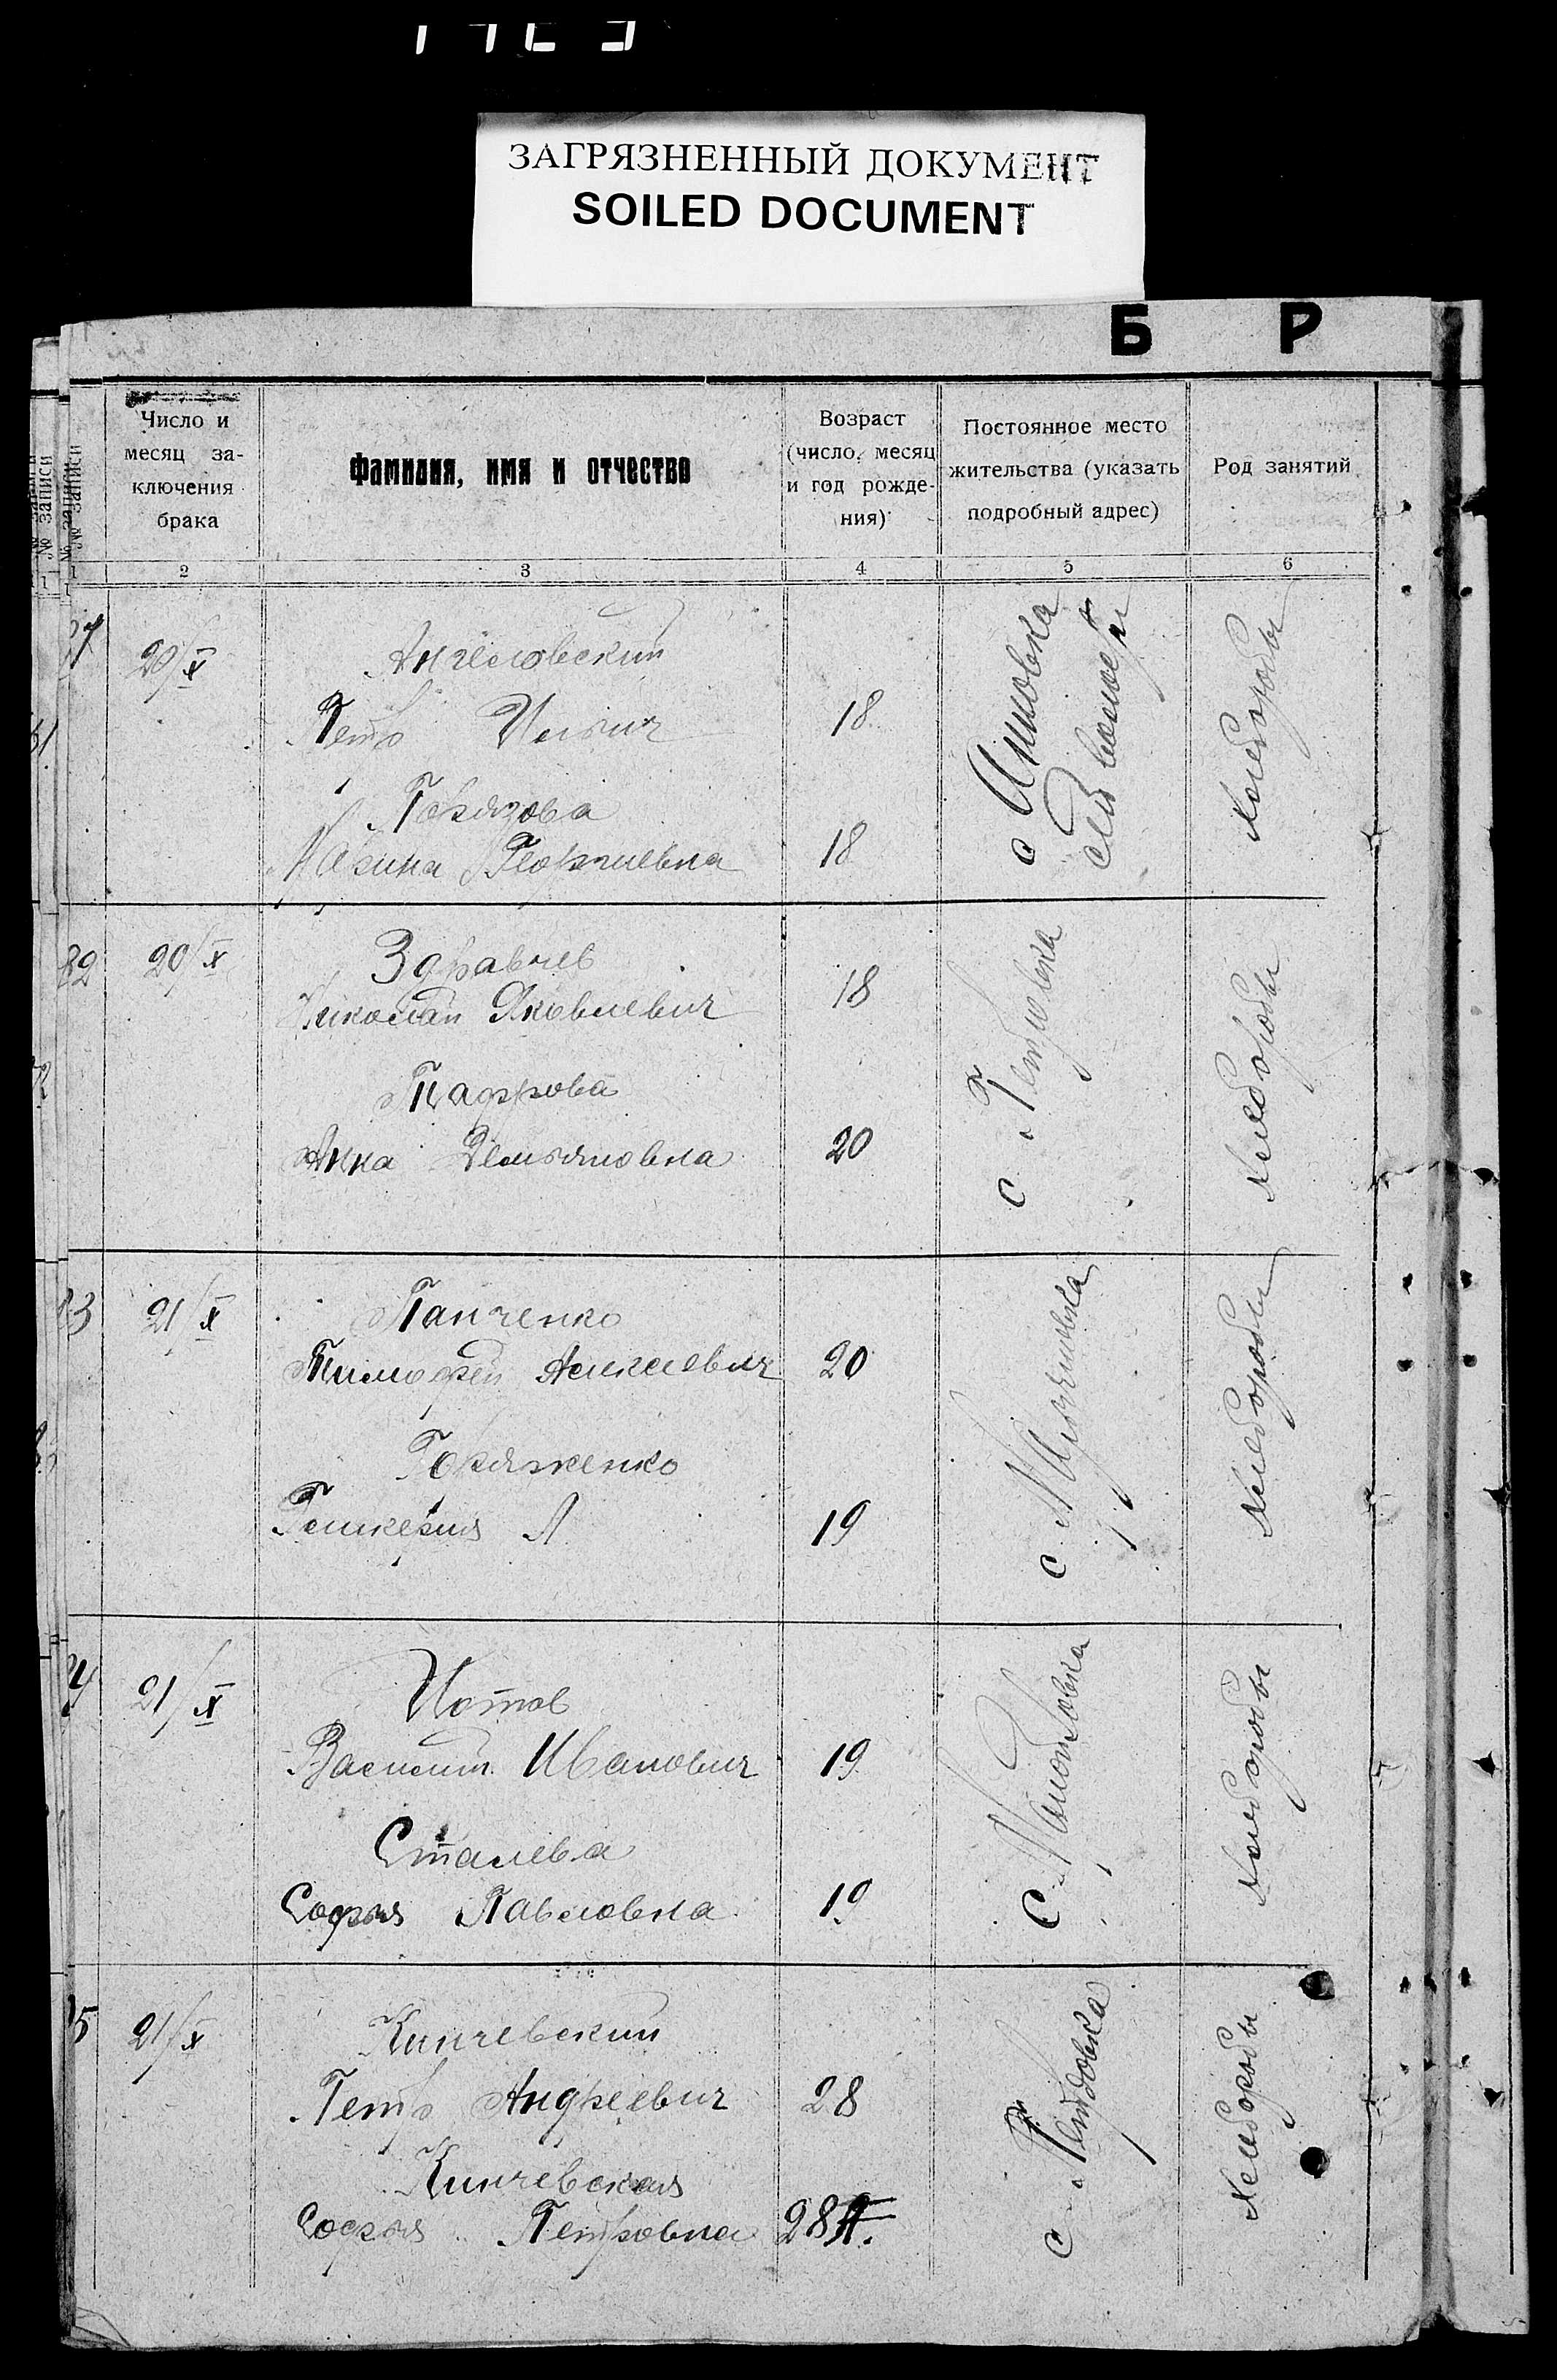 ЗАГРЯЗНЕННЫЙ ДОКУМЕНТ
SOILED DOCUMENT
Б Р
№ записи
Число и месяц за-ключения брака
Фамилия, имя и отчество
Возраст (число, месяц и год рожде-ния)
Постоянное место жительства (указать подробный адрес)
Род занятий
1 2 3 4 5 6
20/X
Ангеловский
Петр Ильич 18
Горязова
Марина Георгиевна 18
хлеборобы
82 20/X
Здравчев
Николай Яковлевич 18
Тафрова
Анна Демьяновна 20
с Петровка
хлеборобы
83 21/X
Панченко
Тимофей Алексеевич 20
Горяженко
Гликерия Л 19
с
хлеборобы
21/X
Иотов
Василий Иванович 19
Сталева
Софья Павловна 19
с
хлеборобы
21/X
Кинчевский
Петр Андреевич 28
Кинчевская
Софья Петровна 28
с
хлеборобы